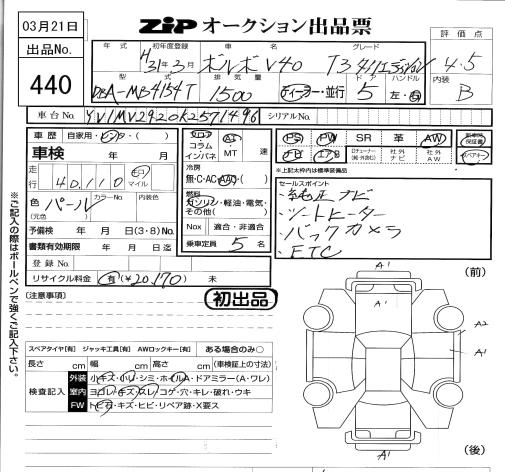 03月21日
ZiP オークション出品票
出品No.
440
評価点
4.5
内装
B
年式 初年度登録 車名 グレード
H31年3月 ボルボ V40 T3
型式 排気量 ドア ハンドル
DBA-MB4154T 1500 ディーラー・並行 5 左・右
車台No. YV1MV2920K2571496 シリアルNo.
車歴 自家用・レンタ・( )
車検 年 月
走行 40,110 キロ マイル
色(元色) パール カラーNo. 内装色
予備検 年 月 日(3・8)Mo
書類有効期限 年 月 日迄
登録No.
リサイクル料金 有(¥20,170) 未
フロア コラム インパネ
AT・MT 速
冷房
無・C・AC・AAC・( )
燃料
ガソリン・軽油・電気・その他( )
Nox 適合・非適合
乗車定員 5 名
PS PW SR 革 AW
ナビ エアB 社外ナビ 社外AW
保証書
スペアキー
※上記太枠内は標準装備品
セールスポイント
・純正ナビ
・シートヒーター
・バックカメラ
・ETC
初出品
(注意事項)
スペアタイヤ[有] ジャッキ工具[有] AWロックキー[有] ある場合のみ○
長さ cm 幅 cm 高さ cm (車検証上の寸法)
検査記入
外装 小キズ・小凹・シミ・ホイルA・ドアミラー(A・ワレ)
室内 ヨゴレ・キズ・スレ・コゲ・穴・キレ・破れ・ウキ
FW トビ石・キズ・ヒビ・リペア跡・X要ス
※ご記入の際はボールペンで強くご記入下さい。
(前)
A1
A1
A2
A1
A1
(後)